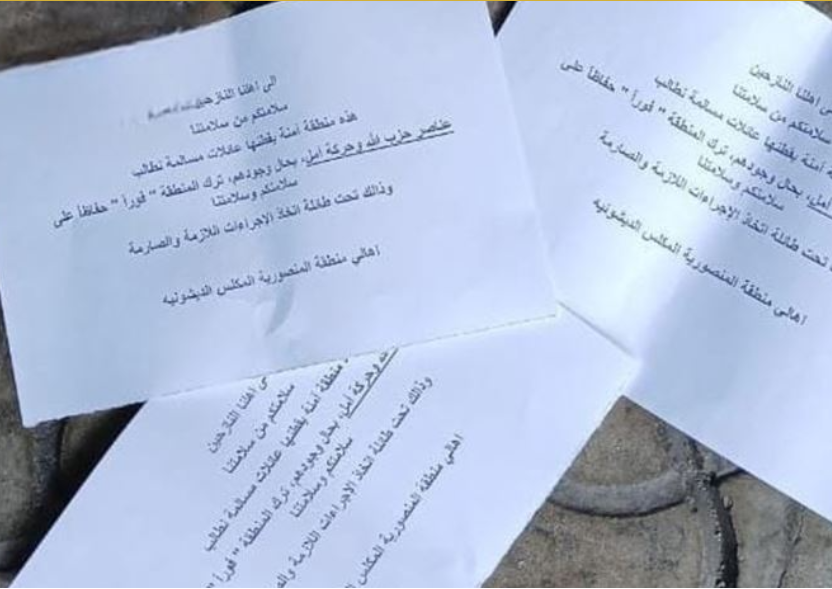 الى اهلنا النازحين
سلامتكم من سلامتنا
هذه منطقة آمنة يقطنها عائلات مسالمة نطالب
عناصر حزب الله وحركة أمل، بحال وجودهم، ترك المنطقة " فوراً " حفاظاً على
سلامتكم وسلامتنا
وذالك تحت طائلة اتخاذ الإجراءات اللازمة والصارمة
اهالي منطقة المنصورية المكلس الديشونيه
ى اهلنا النازحين
سلامتكم من سلامتنا
آمنة يقطنها عائلات مسالمة نطالب
أمل، بحال وجودهم، ترك المنطقة " فوراً " حفاظاً على
سلامتكم وسلامتنا
تحت طائلة اتخاذ الإجراءات اللازمة والصارمة
اهالي منطقة المنصورية المكلس الديشونيه
ى اهلنا النازحين
سلامتكم من سلامتنا
منطقة آمنة يقطنها عائلات مسالمة نطالب
وحركة أمل، بحال وجودهم، ترك المنطقة " فوراً "
سلامتكم وسلامتنا
وذالك تحت طائلة اتخاذ الإجراءات اللازمة
اهالي منطقة المنصورية المكلس